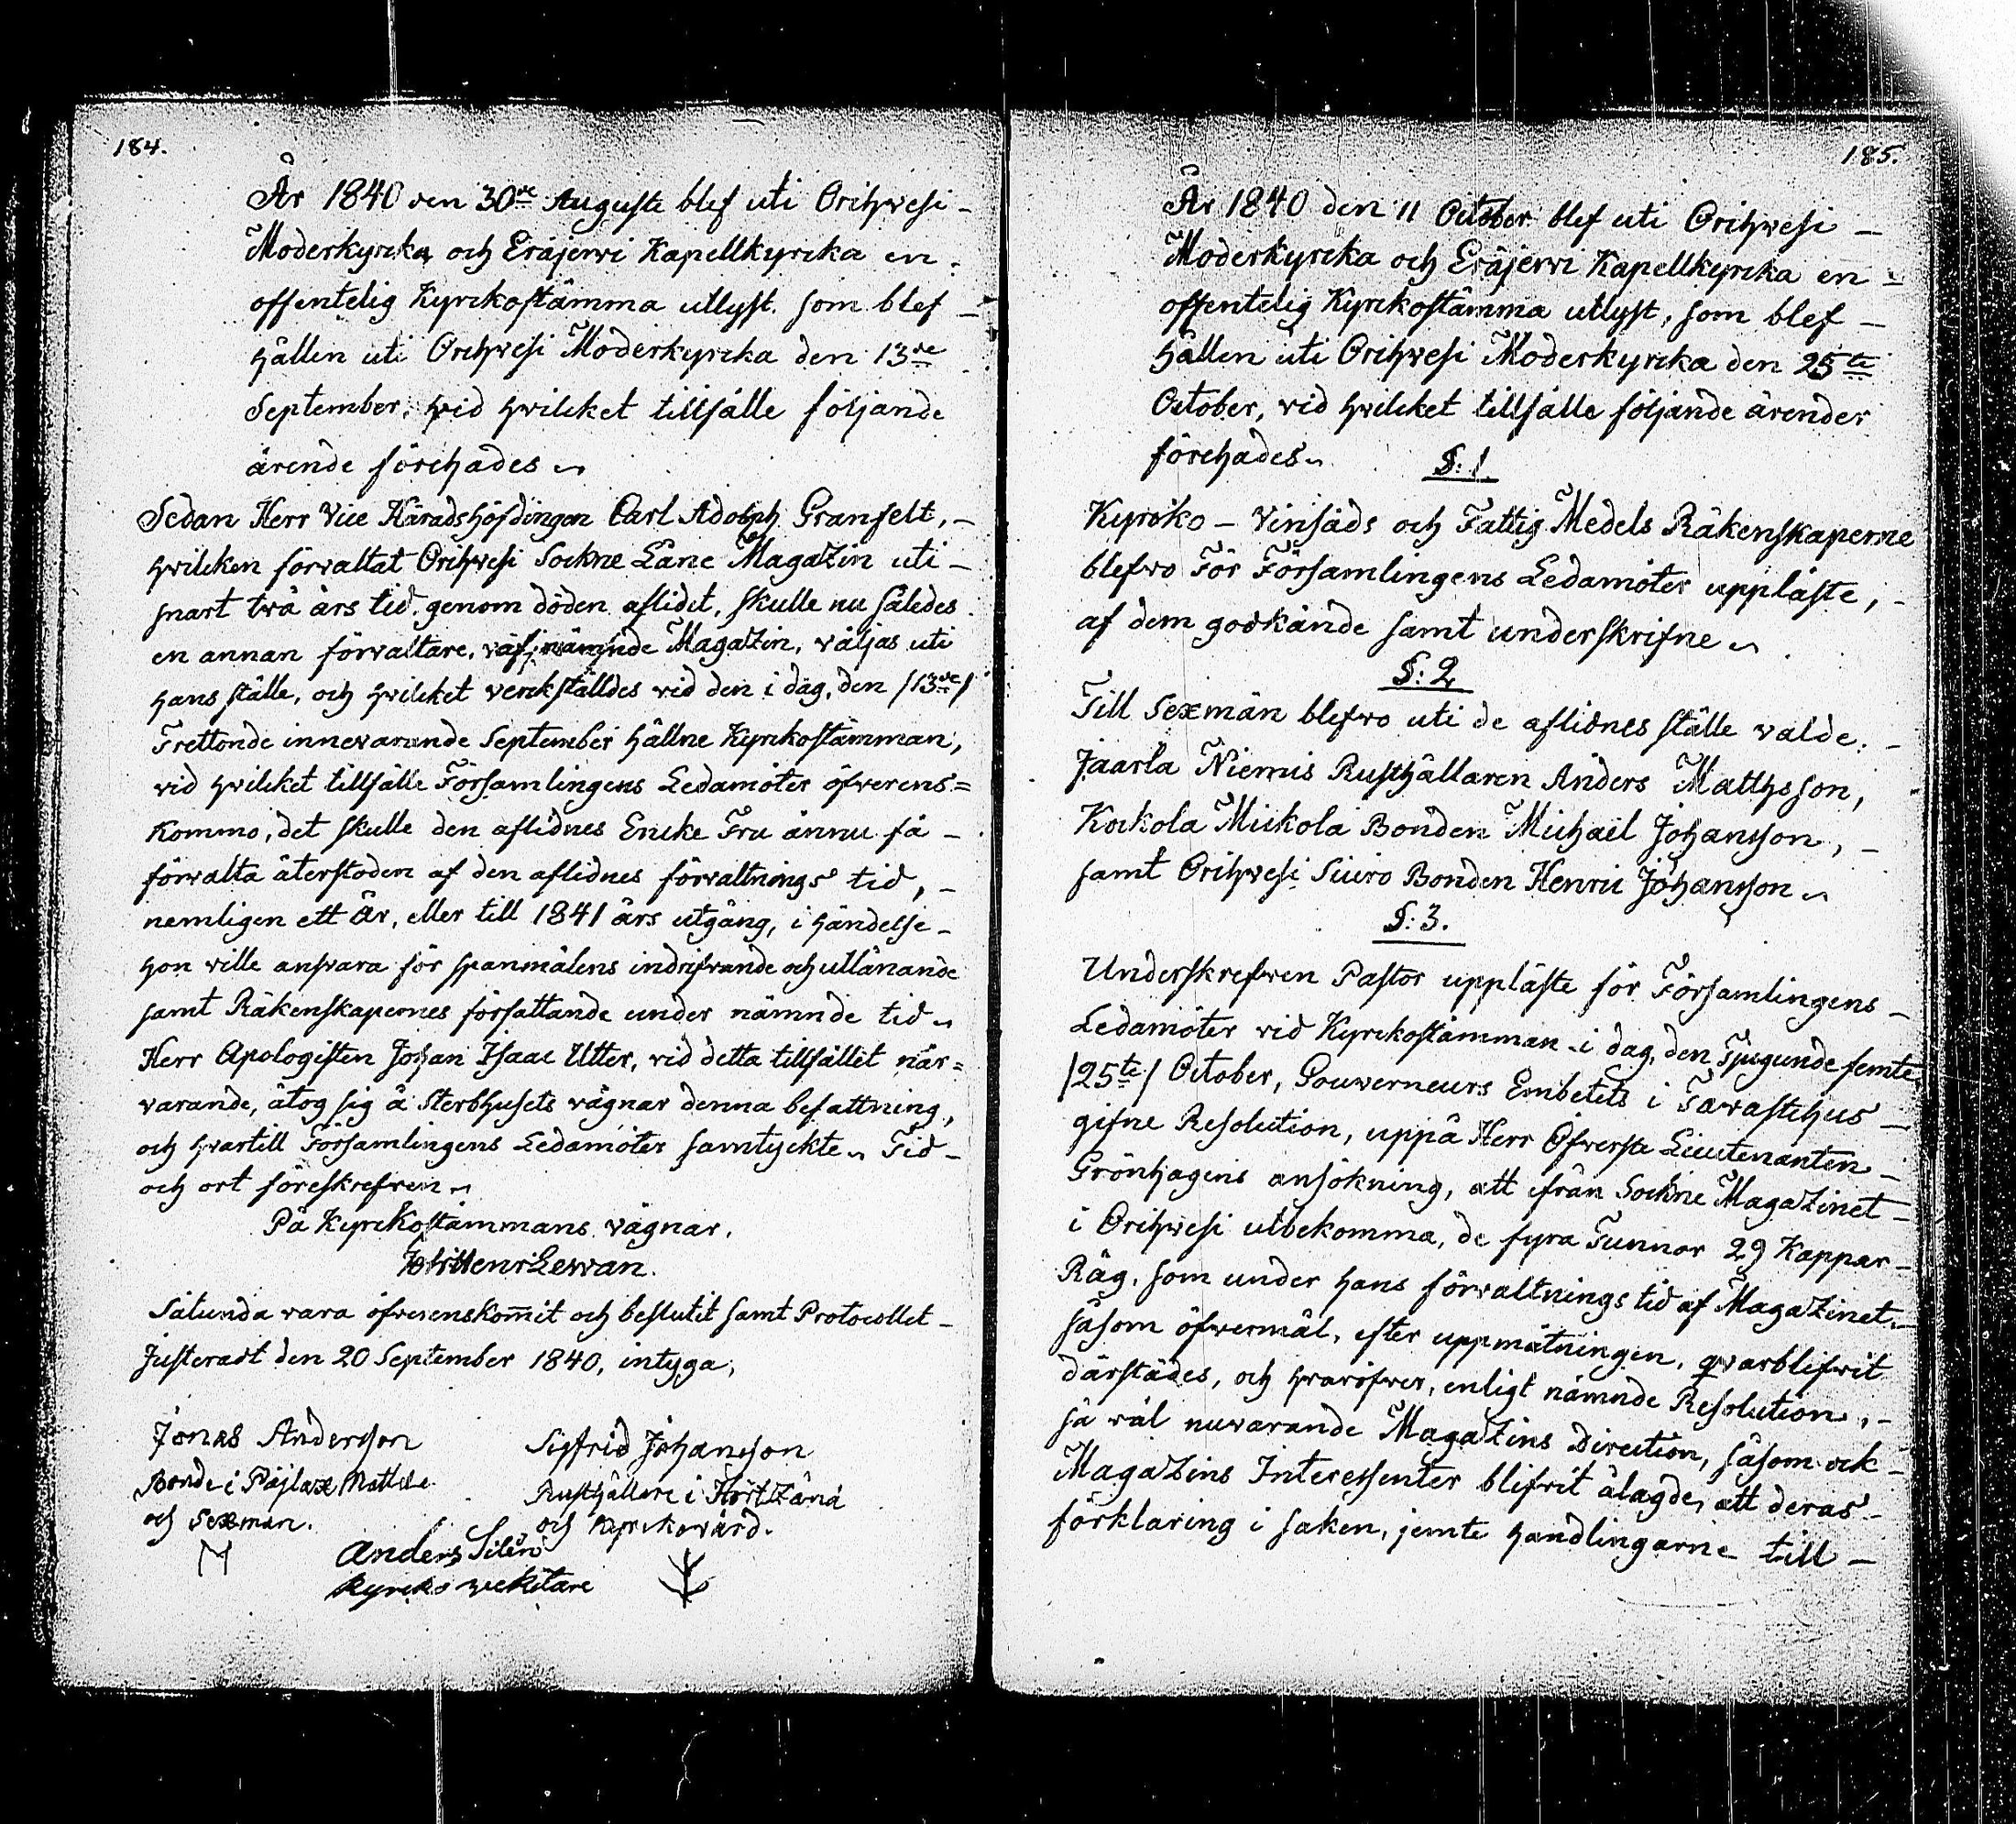 184.
År 1840 den 30de Augusti blef uti Orihvesi –
Moderkyrka och Eräjerwi Kapellkyrcka en
offentelig Kyrckostämma utlyst, som blef –
hållen uti Orihvesi Moderkyrcka den 13de
September, vid hvilcket tillfälle följande
ärende förehades
Sedan Herr Vice Häradshöfdingen Carl Adolph Granfelt, –
hvilcken förvaltat Orihvesi Sockne Låne Magazin uti –
snart två års tid, genom döden aflidit, skulle nu således
en annan förvaltare, nämnde Magazin, väljas uti
hans ställe, och hvilcket verckställdes vid den i dag, den /13de/
Trettonde innevarande September hållne Kyrckostämman,
vid hvilcket tillfälle Församlingens Ledamöter öfverens=
kommo, det skulle den aflidnes Encke Fru ännu få –
förvalta återstoden af den aflidnes förvaltnings tid, –
nemligen ett År, eller till 1841 års utgång, i händelse –
hon ville ansvara för spanmålens indrifvande och utlånande
samt Räkenskapernes författande under nämnde tid
Herr Apologisten Johan Isaac Utter, vid detta tillfället när=
varande, åtog sig å Sterbhusets vägnar denna befattning,
och hvartill Församlingens Ledamöter samtyckte Tid –
och ort föreskrefven
På Kyrckostämmans vägnar.
Henr Levan.
Sålunda vara öfverenskommit och beslutit samt Protocollet –
Justeradt den 20 September 1840, intyga,
Jonas Andersson
Bonde i Päjlax Mattila
och Sexman.
Sigfrid Johansson
Rusthållare i
och Kyrckovärd.
Anders Silén
Kyrcko vecktare
185.
År 1840 den 11 October blef uti Orihvesi –
Moderkyrcka och Eräjerwi Kapellkyrcka en –
offentelig Kyrckostämma utlyst, som blef –
hållen uti Orihvesi Moderkyrcka den 25te
October, vid hvilcket tillfälle följande ärender
förehades
§: 1.
Kyrcko – Vinsäds och Fattig Medels Räkenskaperne
blefvo För Församlingens Ledamöter uppläste, –
af dem godkände samt underskrifne
§: 2
Till Sexmän blefvo uti de aflidnes ställe valde: –
Jaarla Niemis Rusthållaren Anders Matthsson,
Kockola Mickola Bonden Michaël Johansson, –
samt Orihvesi Siuro Bonden Henric Johansson
§: 3.
Underskrefven Pastor uppläste för Församlingens –
Ledamöter vid Kyrckostämman i dag, den Tjugunde femte
/25te/ October, Gouverneurs Embetets i Tavastehus –
gifne Resolution, uppå Herr Öfverste Lieutenanten –
Grönhagens ansökning, att ifrån Sockne Magazinet –
i Orihvesi utbekomma, de fyra Tunnor 29 Kappar –
Råg, som under hans förvaltnings tid af Magazinet –
såsom öfvermål, efter uppmätningen, qvarblifvit
därstädes, och hvaröfver, enligt nämnde Resolution, –
så väl nuvarande Magazins Direction, såsom ock –
Magazins Interessenter blifvit ålagde, att deras –
förklaring i saken, jemte handlingarne till –